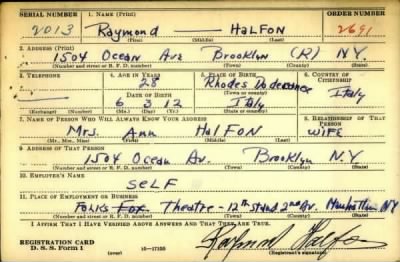 SERIAL NUMBER 1. NAME (Print) ORDER NUMBER
2013 Raymond —— HalFON 2691
(First) (Middle) (Last)
2. ADDRESS (Print)
1504 Ocean Ave Brooklyn (R) N.Y.
(Number and street or R. F. D. number) (Town) (County) (State)
3. TELEPHONE 4. AGE IN YEARS 5. PLACE OF BIRTH 6. COUNTRY OF CITIZENSHIP
28 Rhodes
DATE OF BIRTH (Town or county)
6 3 12 Italy Italy
(Exchange) (Number) (Mo.) (Day) (Yr.) (State or country)
7. NAME OF PERSON WHO WILL ALWAYS KNOW YOUR ADDRESS 8. RELATIONSHIP OF THAT PERSON
Mrs. Ann HalFON WIFE
(Mr., Mrs., Miss) (First) (Middle) (Last)
9. ADDRESS OF THAT PERSON
1504 Ocean Av. Brooklyn N.Y.
(Number and street or R. F. D. number) (Town) (County) (State)
10. EMPLOYER'S NAME
SELF
11. PLACE OF EMPLOYMENT OR BUSINESS
FOLKS Fox Theatre - 12th St and 2nd Av. Manhattan NY
(Number and street or R. F. D. number) (Town) (County) (State)
I AFFIRM THAT I HAVE VERIFIED ABOVE ANSWERS AND THAT THEY ARE TRUE.
REGISTRATION CARD
D. S. S. Form 1 (over) 16—17105 Raymond Halfon